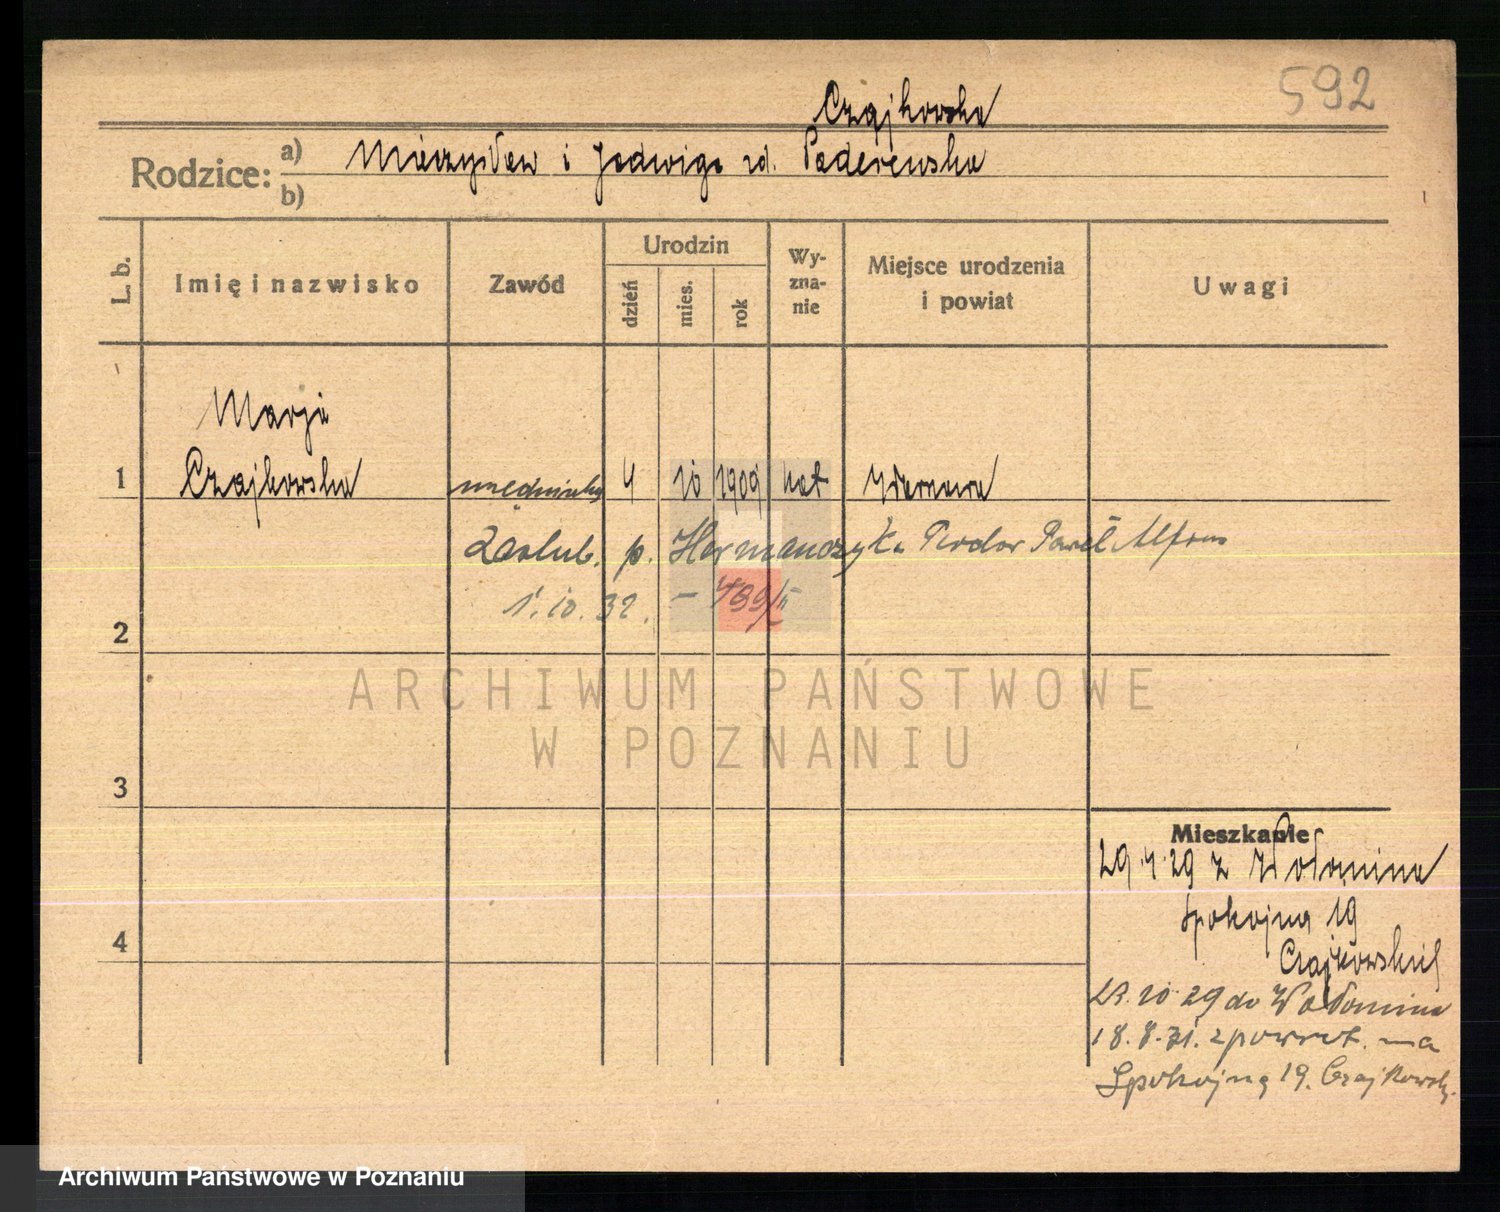 592
Czajkowska
Rodzice: a) Mieczysław i Jadwiga zd. Paderewska
b)
L. b. Imię i nazwisko Zawód Urodzin dzień mies. rok Wy-zna-nie Miejsce urodzenia i powiat Uwagi
Marja
1 Czajkowska urzędniczka 4 10 1909 kat Warszawa
Zaślub. p. Hermanczyka Teodor Paweł Alfons
1.10.32. – 499/II
2
ARCHIWUM PAŃSTWOWE
W POZNANIU
3
Mieszkanie
29.4.29 z Wołomina
Spokojna 19
Czajkowskich
23.10 29 do Wołomina
18.8.31. z powrot. na
Spokojną 19. Czajkowsk.
4
Archiwum Państwowe w Poznaniu